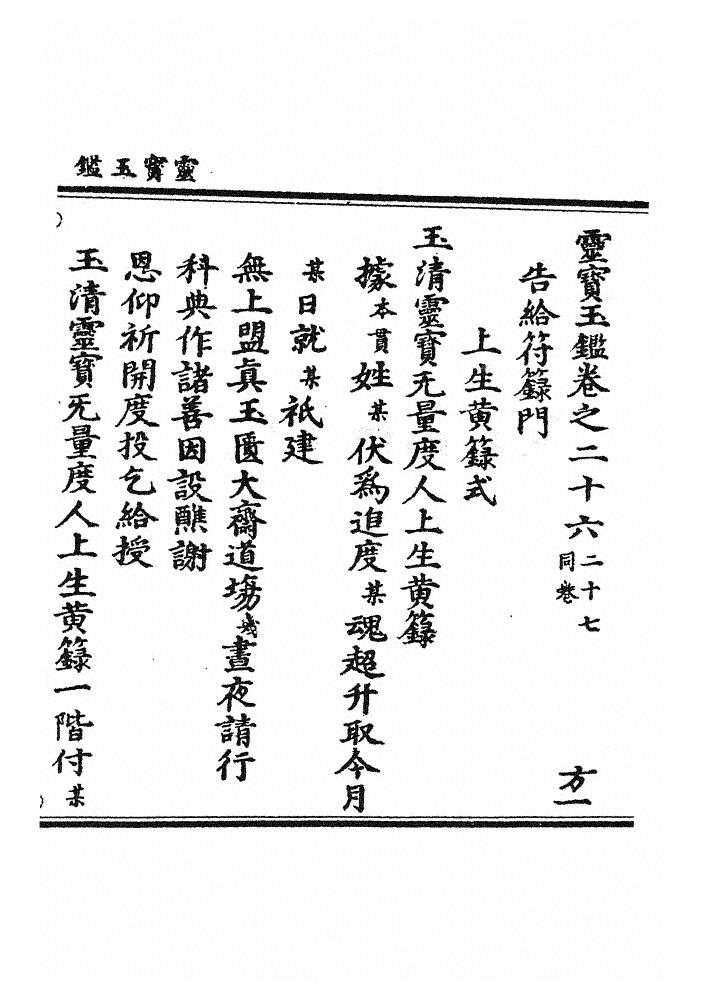 靈寳玉鑑
靈寳玉鑑卷之二十六 二十七同卷 方一
告給符籙門
上生黄籙式
玉清靈寳无量度人上生黄籙
據本貫姓某伏爲追度某魂超升取今月
某日就某祇建
無上盟真玉匱大齋道塲幾晝夜請行
科典作諸善因設醮謝
恩仰祈開度投乞給授
玉清靈寳无量度人上生黄籙一階付某